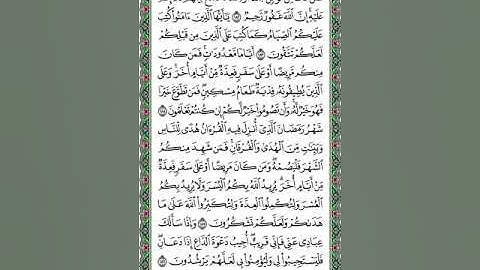 عَلَيْهِ إِنَّ ٱللَّهَ غَفُورٌ رَّحِيمٌ ١٨٢ يَٰٓأَيُّهَا ٱلَّذِينَ ءَامَنُوا۟ كُتِبَ
عَلَيْكُمُ ٱلصِّيَامُ كَمَا كُتِبَ عَلَى ٱلَّذِينَ مِن قَبْلِكُمْ
لَعَلَّكُمْ تَتَّقُونَ ١٨٣ أَيَّامًا مَّعْدُودَٰتٍ فَمَن كَانَ
مِنكُم مَّرِيضًا أَوْ عَلَىٰ سَفَرٍ فَعِدَّةٌ مِّنْ أَيَّامٍ أُخَرَ وَعَلَى
ٱلَّذِينَ يُطِيقُونَهُۥ فِدْيَةٌ طَعَامُ مِسْكِينٍ فَمَن تَطَوَّعَ خَيْرًا
فَهُوَ خَيْرٌ لَّهُۥ وَأَن تَصُومُوا۟ خَيْرٌ لَّكُمْ إِن كُنتُمْ تَعْلَمُونَ ١٨٤
شَهْرُ رَمَضَانَ ٱلَّذِىٓ أُنزِلَ فِيهِ ٱلْقُرْءَانُ هُدًى لِّلنَّاسِ
وَبَيِّنَٰتٍ مِّنَ ٱلْهُدَىٰ وَٱلْفُرْقَانِ فَمَن شَهِدَ مِنكُمُ
ٱلشَّهْرَ فَلْيَصُمْهُ وَمَن كَانَ مَرِيضًا أَوْ عَلَىٰ سَفَرٍ فَعِدَّةٌ
مِّنْ أَيَّامٍ أُخَرَ يُرِيدُ ٱللَّهُ بِكُمُ ٱلْيُسْرَ وَلَا يُرِيدُ بِكُمُ
ٱلْعُسْرَ وَلِتُكْمِلُوا۟ ٱلْعِدَّةَ وَلِتُكَبِّرُوا۟ ٱللَّهَ عَلَىٰ مَا
هَدَىٰكُمْ وَلَعَلَّكُمْ تَشْكُرُونَ ١٨٥ وَإِذَا سَأَلَكَ
عِبَادِى عَنِّى فَإِنِّى قَرِيبٌ أُجِيبُ دَعْوَةَ ٱلدَّاعِ إِذَا دَعَانِ
فَلْيَسْتَجِيبُوا۟ لِى وَلْيُؤْمِنُوا۟ بِى لَعَلَّهُمْ يَرْشُدُونَ ١٨٦